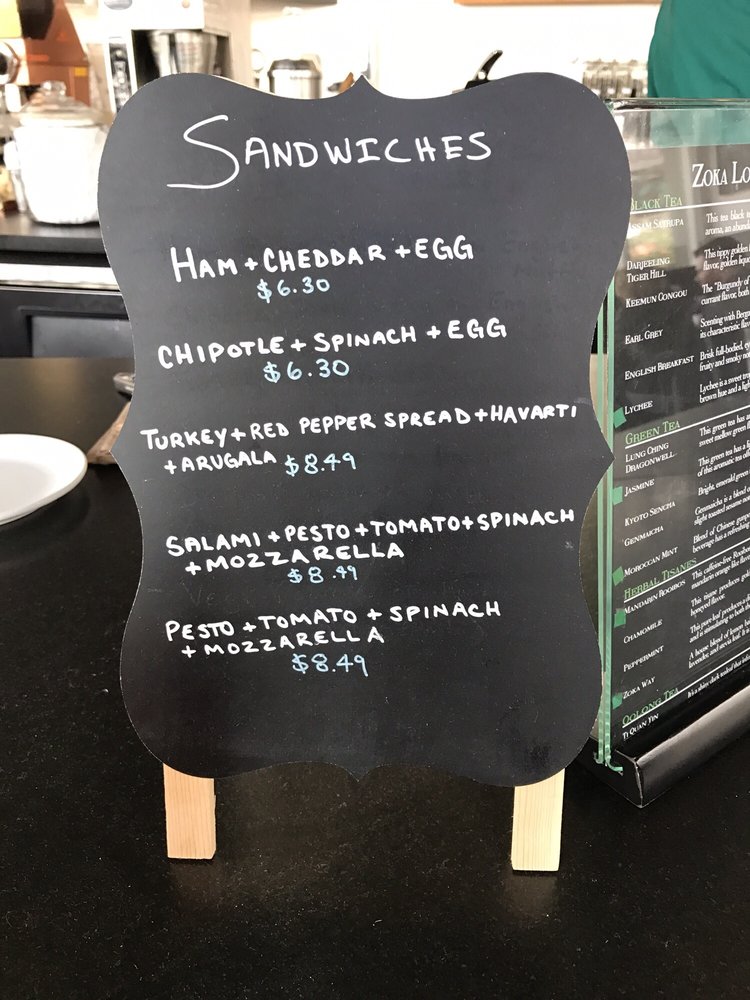 SANDWICHES
HAM + CHEDDAR + EGG
$6.30
CHIPOTLE + SPINACH + EGG
$6.30
TURKEY + RED PEPPER SPREAD + HAVARTI
+ ARUGALA $8.49
SALAMI + PESTO + TOMATO + SPINACH
+ MOZZARELLA
$8.49
PESTO + TOMATO + SPINACH
+ MOZZARELLA
$8.49
ZOKA
BLACK TEA
ASSAM SATRUPA This tea black
aroma, an
DARJEELING This tippy golden
TIGER HILL flavor, golden
KEEMUN CONGOU The "Burgundy of
currant flavor, both
EARL GREY Scenting with
its characteristic
ENGLISH BREAKFAST Brisk full-bodied,
fruity and smoky
LYCHEE Lychee is a sweet
brown hue and a
GREEN TEA
LUNG CHING This green tea has
DRAGONWELL sweet mellow green
JASMINE This green tea has a
of this aromatic tea
KYOTO SENCHA Bright, emerald green
GENMAICHA Genmaicha is a blend
slight toasted
MOROCCAN MINT Blend of Chinese
beverage has a refreshing
HERBAL TISANES
MANDARIN ROOIBOS This caffeine-free Rooibos
mandarin orange like
CHAMOMILE This tisane produces
honeyed flavor.
PEPPERMINT This pure leaf produces a
and is stimulating to both
ZOKA WAY A house blend of
lavender, and stevia leaf.
OOLONG TEA
TI QUAN YIN It's a shiny, dark